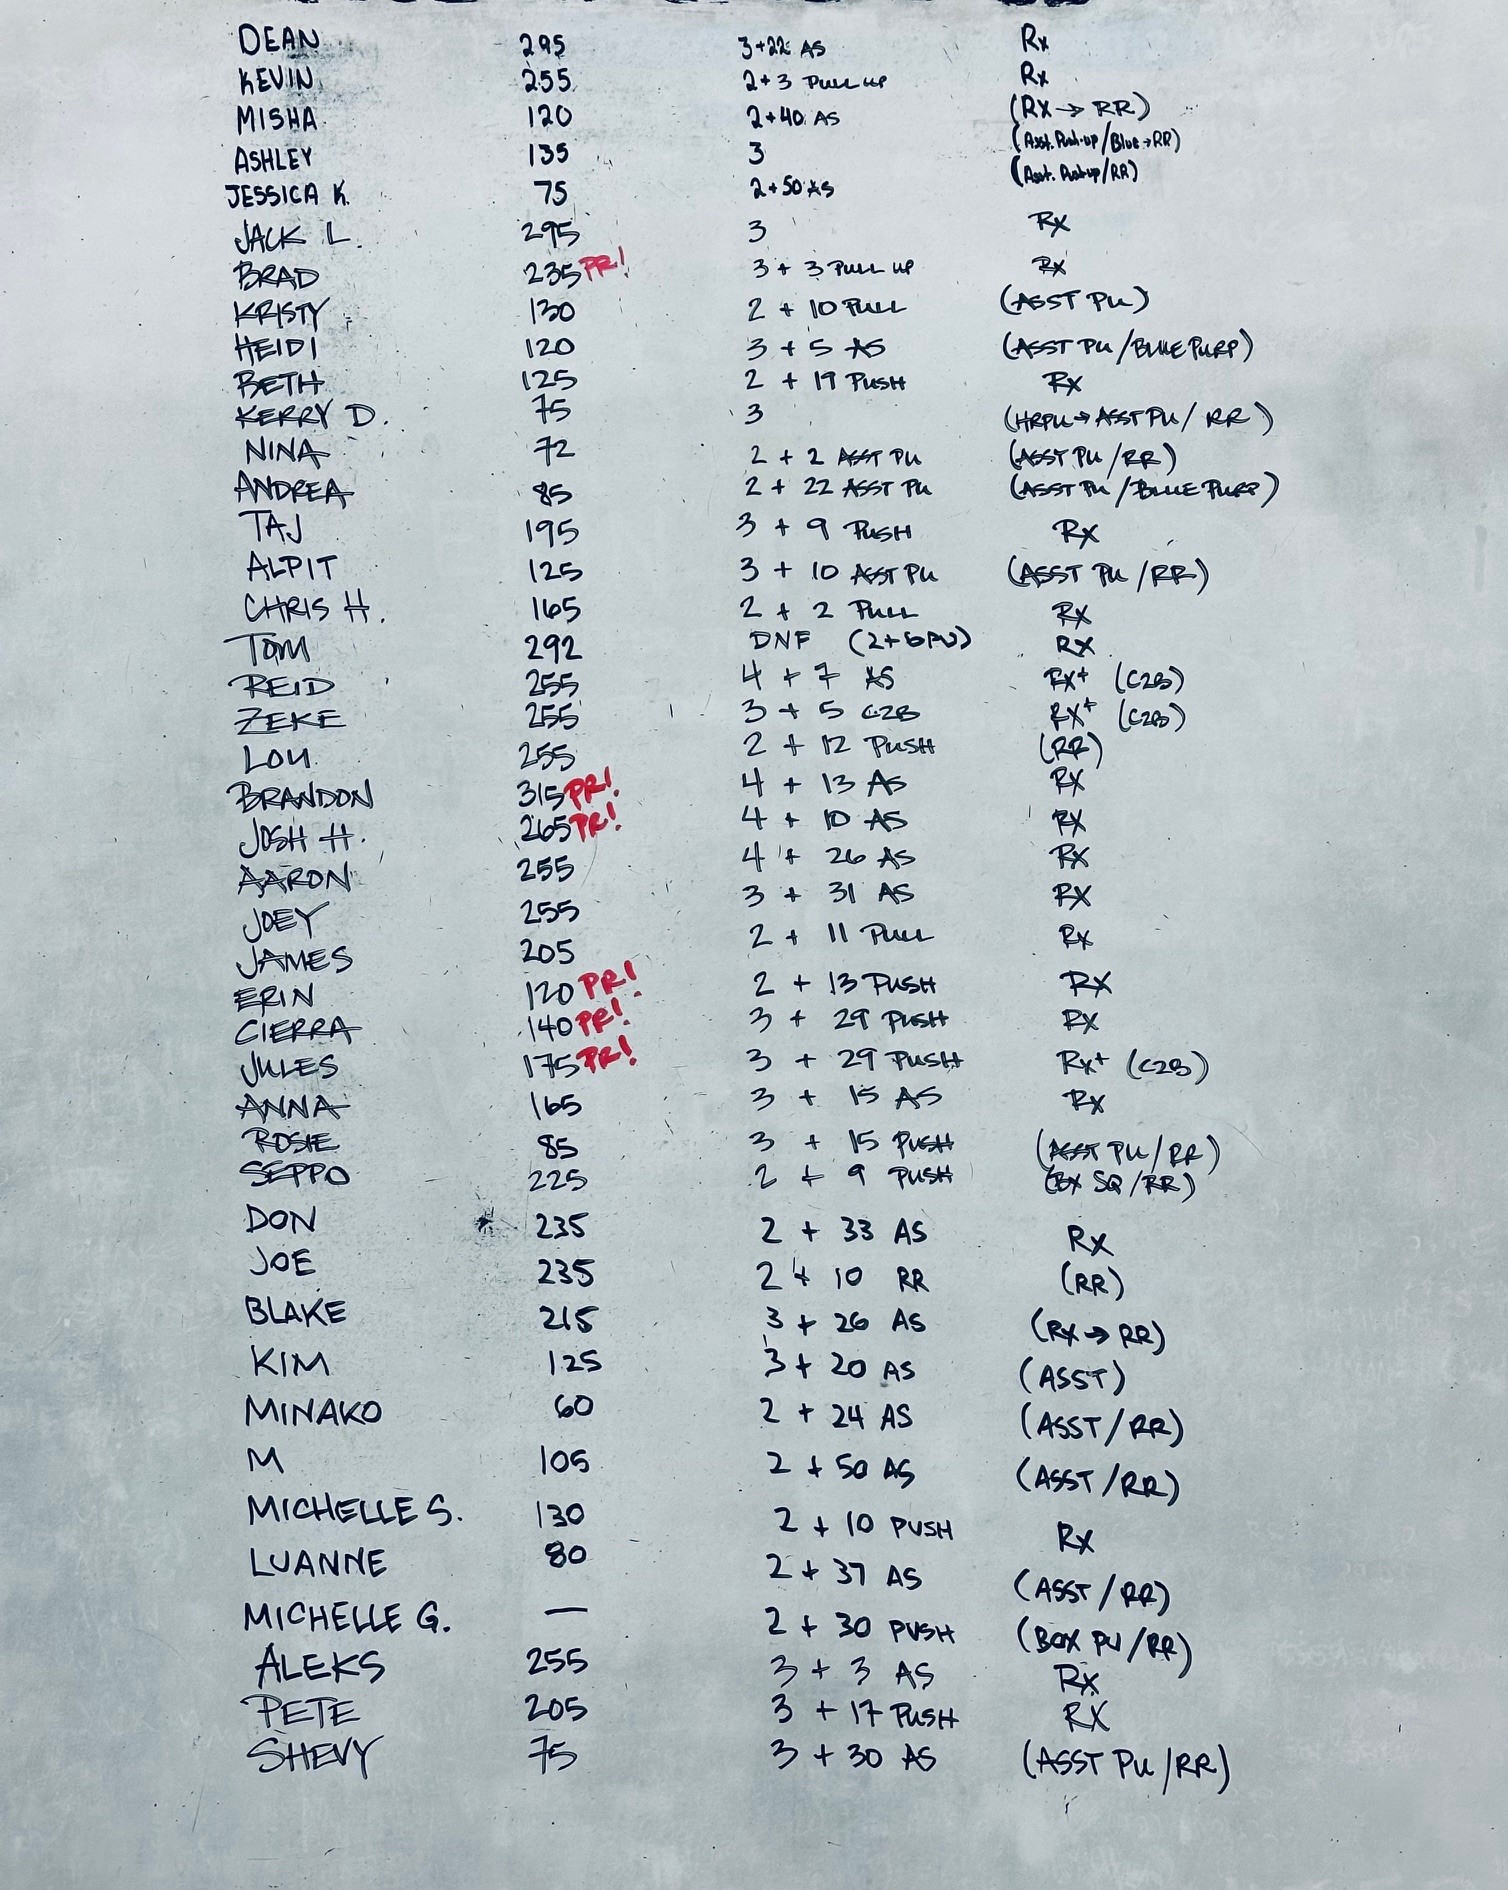 DEAN 295 3+22 AS Rx
KEVIN 255 2+3 PULL UP Rx
MISHA 120 2+40 AS (RX → RR)
ASHLEY 135 3 (Asst. Push-up/Blue→RR)
JESSICA K. 75 2+50 AS (Asst. Push-up/RR)
JACK L. 295 3 RX
BRAD 235 PR! 3 + 3 PULL UP RX
KRISTY 130 2 + 10 PULL (ASST PU)
HEIDI 120 3 + 5 AS (ASST PU/BLUE PURP)
BETH 125 2 + 19 PUSH RX
KERRY D. 75 3 (HRPU→ASST PU/RR)
NINA 72 2 + 2 ASST PU (ASST PU/RR)
ANDREA 85 2 + 22 ASST PU (ASST PU/BLUE PURP)
TAJ 195 3 + 9 PUSH RX
ALPIT 125 3 + 10 ASST PU (ASST PU/RR)
CHRIS H. 165 2 + 2 PULL RX
TOM 292 DNF RX
REID 255 4 + 7 AS RX+ (C2B)
ZEKE 255 3 + 5 C2B RX+ (C2B)
LOU 255 2 + 12 PUSH (RR)
BRANDON 315 PR! 4 + 13 AS RX
JOSH H. 265 PR! 4 + 10 AS RX
AARON 255 4 + 26 AS RX
JOEY 255 3 + 31 AS RX
JAMES 205 2 + 11 PULL RX
ERIN 120 PR! 2 + 13 PUSH RX
CIERRA 140 PR! 3 + 29 PUSH RX
JULES 175 PR! 3 + 29 PUSH RX+ (C2B)
ANNA 165 3 + 15 AS RX
ROSIE 85 3 + 15 PUSH (ASST PU/RR)
SEPPO 225 2 + 9 PUSH (BX SQ/RR)
DON 235 2 + 33 AS Rx
JOE 235 2 + 10 RR (RR)
BLAKE 215 3 + 26 AS (RX → RR)
KIM 125 3 + 20 AS (ASST)
MINAKO 60 2 + 24 AS (ASST/RR)
M 105 2 + 50 AS (ASST/RR)
MICHELLE S. 130 2 + 10 PUSH Rx
LUANNE 80 2 + 37 AS (ASST/RR)
MICHELLE G. — 2 + 30 PUSH (BOX PU/RR)
ALEKS 255 3 + 3 AS RX
PETE 205 3 + 17 PUSH RX
SHEVY 75 3 + 30 AS (ASST PU/RR)